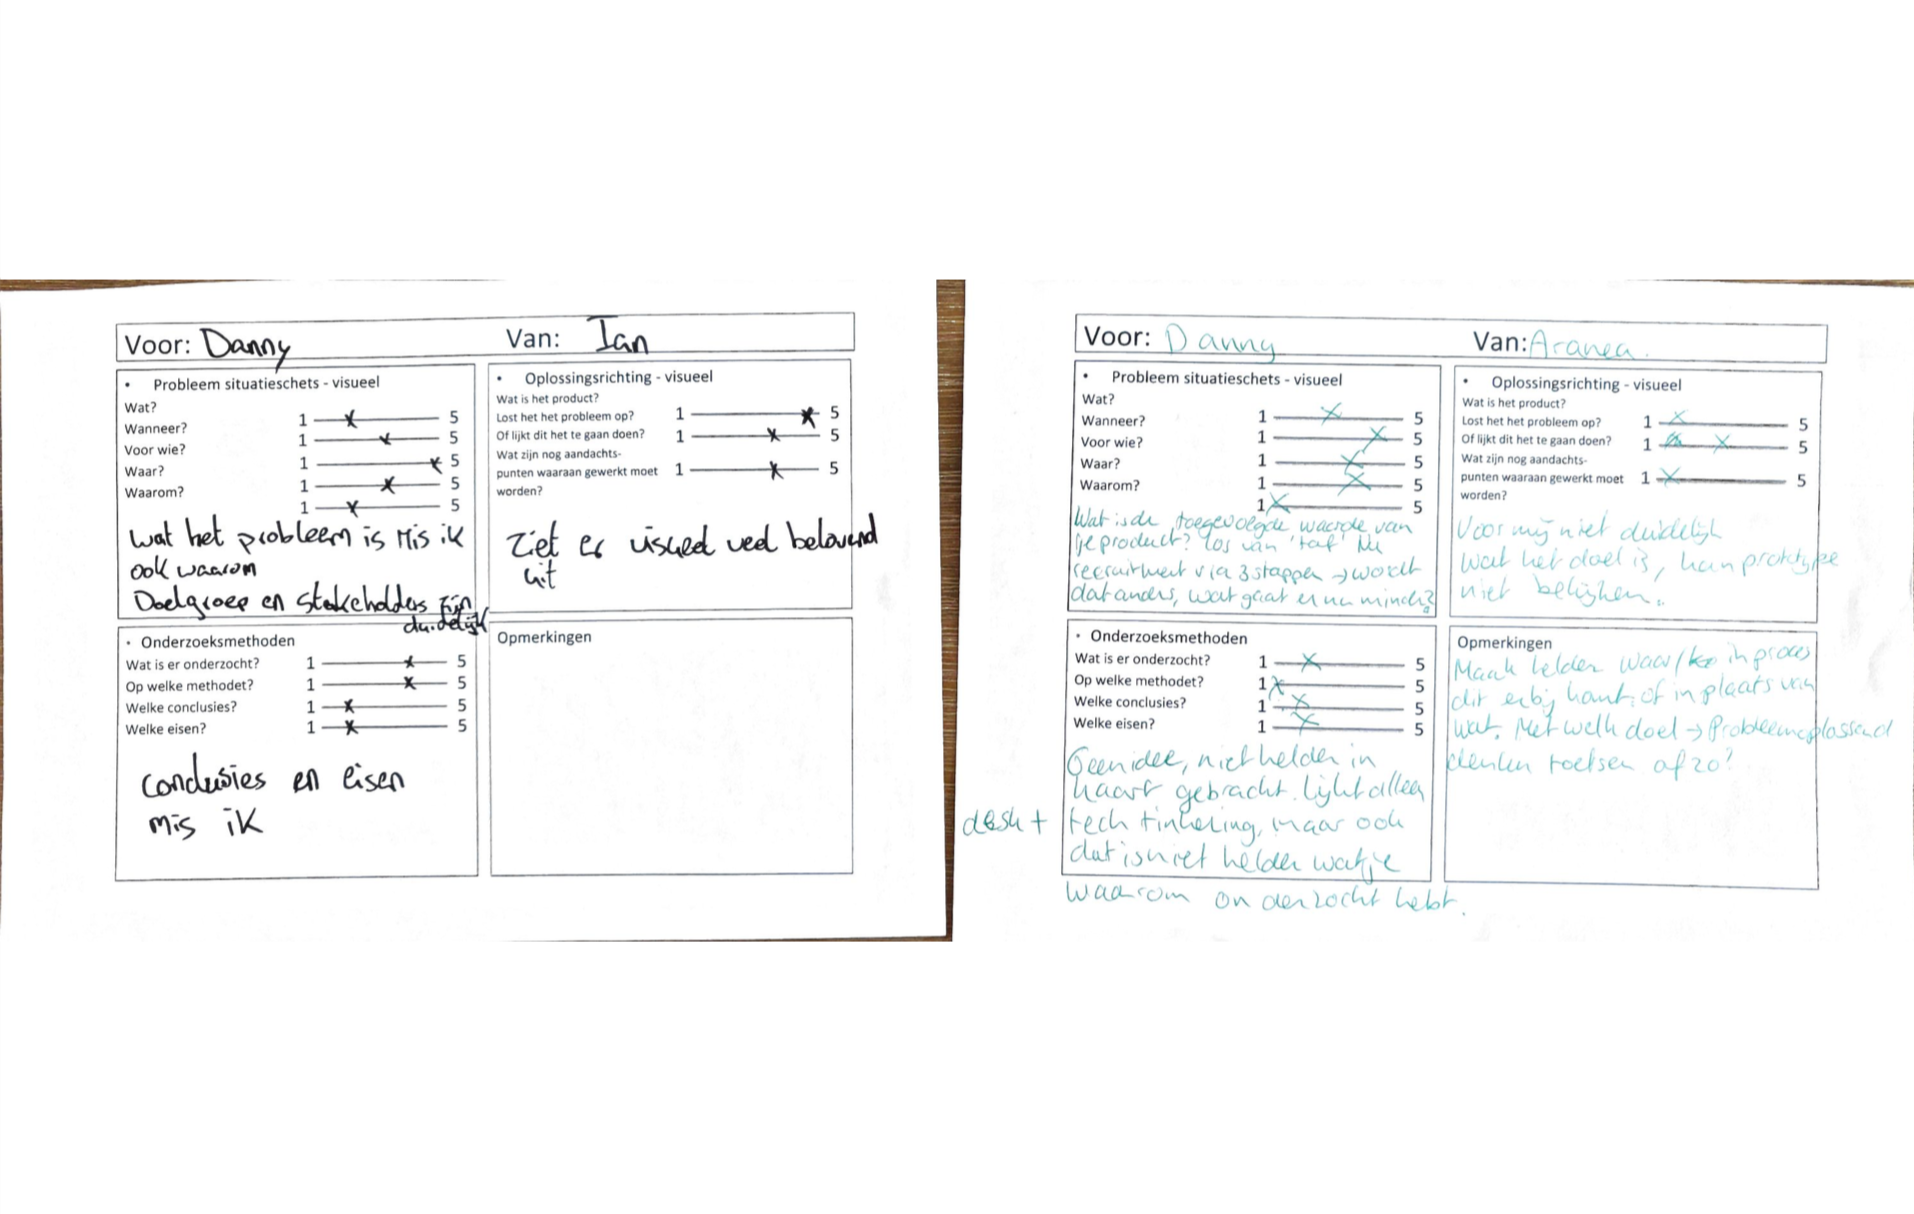 Voor: Danny Van: Ian
• Probleem situatieschets - visueel
Wat?
1 5
Wanneer?
1 5
Voor wie?
1 5
Waar?
1 5
Waarom?
1 5
wat het probleem is Mis ik
ook waarom
Doelgroep en stakeholders zijn
duidelijk
• Oplossingsrichting - visueel
Wat is het product?
Lost het het probleem op? 1 5
Of lijkt dit het te gaan doen? 1 5
Wat zijn nog aandachts-
punten waaraan gewerkt moet 1 5
worden?
Ziet er visueel veel belovend
uit
• Onderzoeksmethoden
Wat is er onderzocht? 1 5
Op welke methodet? 1 5
Welke conclusies? 1 5
Welke eisen? 1 5
Conclusies en eisen
mis ik
Opmerkingen
Voor: Danny Van: Aranea.
• Probleem situatieschets - visueel
Wat?
Wanneer? 1 5
Voor wie? 1 5
Waar? 1 5
Waarom? 1 5
1 5
Wat is de toegevoegde waarde van
je product? los van 'tof' Nu
recruitment via 3 stappen → wordt
dat anders, wat gaat er nu minder?
• Oplossingsrichting - visueel
Wat is het product?
Lost het het probleem op? 1 5
Of lijkt dit het te gaan doen? 1 5
Wat zijn nog aandachts-
punten waaraan gewerkt moet 1 5
worden?
Voor mij niet duidelijk
wat het doel is, kan prototype
niet bekijken..
• Onderzoeksmethoden
Wat is er onderzocht? 1 5
Op welke methodet? 1 5
Welke conclusies? 1 5
Welke eisen? 1 5
Geen idee, niet helder in
kaart gebracht. lijkt alleen
desk + tech tinkering, maar ook
dat is niet helder wat je
waarom onderzocht hebt.
Opmerkingen
Maak helder waar/ in proces
dit erbij komt of in plaats van
wat. Met welk doel → Probleemoplossend
denken toetsen of zo?